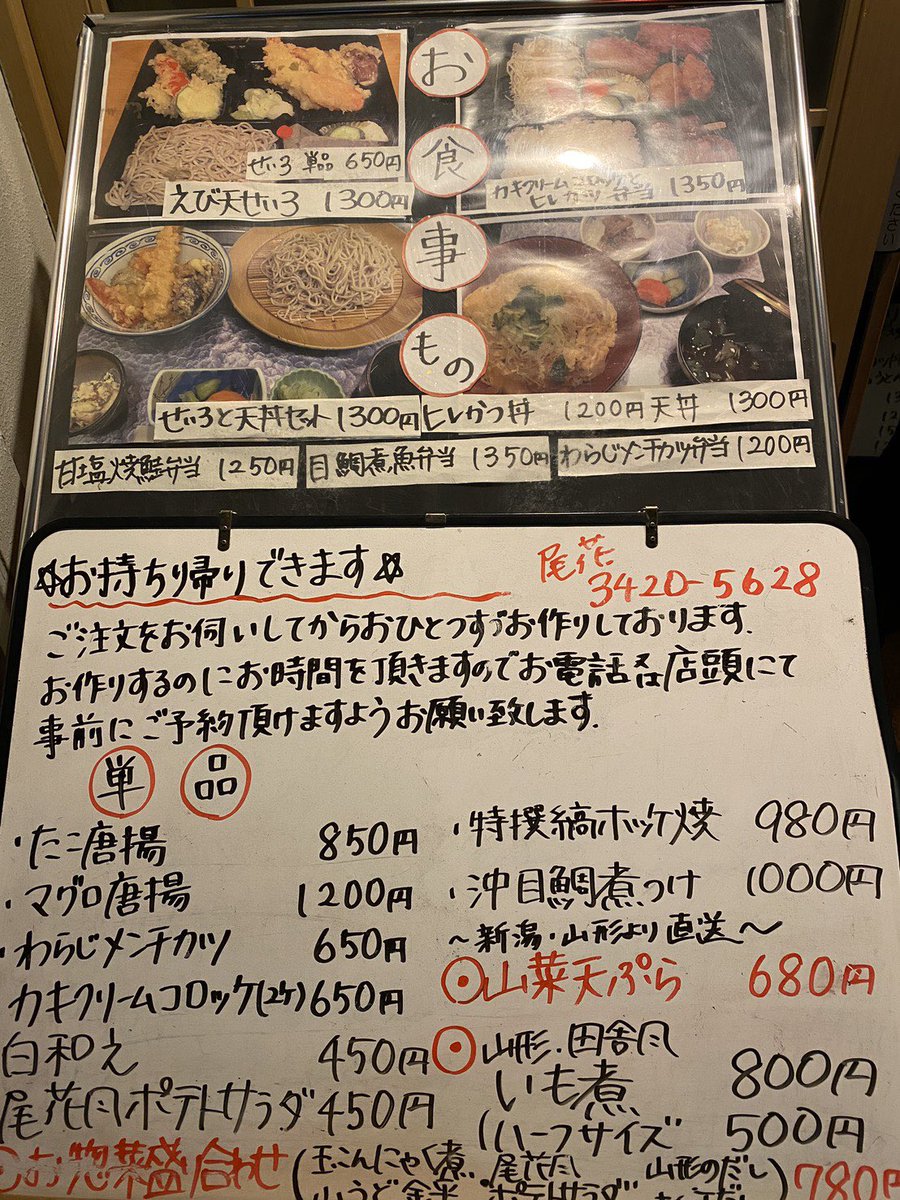 お食事もの
せいろ 単品 650円
えび天せいろ 1300円
カキクリームコロッケと
ヒレカツ 弁当 1350円
せいろと天丼セット 1300円
ヒレかつ丼 1200円 天丼 1300円
甘塩焼鮭弁当 1250円
目鯛煮魚弁当 1350円
わらじメンチカツ弁当 1200円
☆お持ち帰りできます☆
尾花
3420-5628
ご注文をお伺いしてからおひとつずつお作りしております.
お作りするのにお時間を頂きますのでお電話又は店頭にて
事前にご予約頂けますようお願い致します.
単品
・たこ唐揚 850円
・マグロ唐揚 1200円
・わらじメンチカツ 650円
カキクリームコロッケ(2ケ) 650円
白和え 450円
尾花風ポテトサラダ 450円
・特撰縞ホッケ焼 980円
・沖目鯛煮つけ 1000円
〜新潟・山形より直送〜
⦿山菜天ぷら 680円
⦿山形.田舎風
いも煮 800円
(ハーフサイズ 500円
お惣菜盛合わせ
(玉こんにゃく煮. 尾花風 山形のだし
ポテトサラダ
780円
ださい